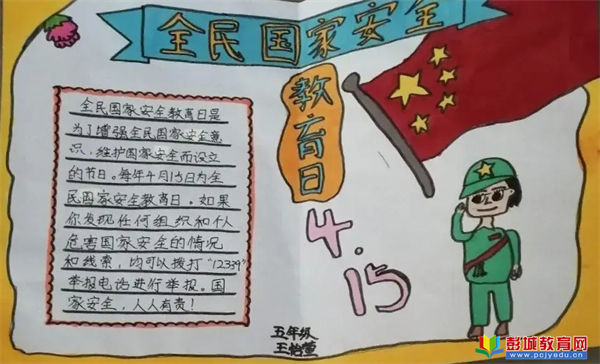 全民国家安全
教育日
4.15
全民国家安全教育日是
为了增强全民国家安全意
识，维护国家安全而设立
的节日。每年4月15日为全
民国家安全教育日。如果
你发现任何组织和个人
危害国家安全的情况
和线索，均可以拨打“12339”
举报电话进行举报。国
家安全，人人有责！
五年级
王怡萱
彭城教育网
www.pcjyedu.cn